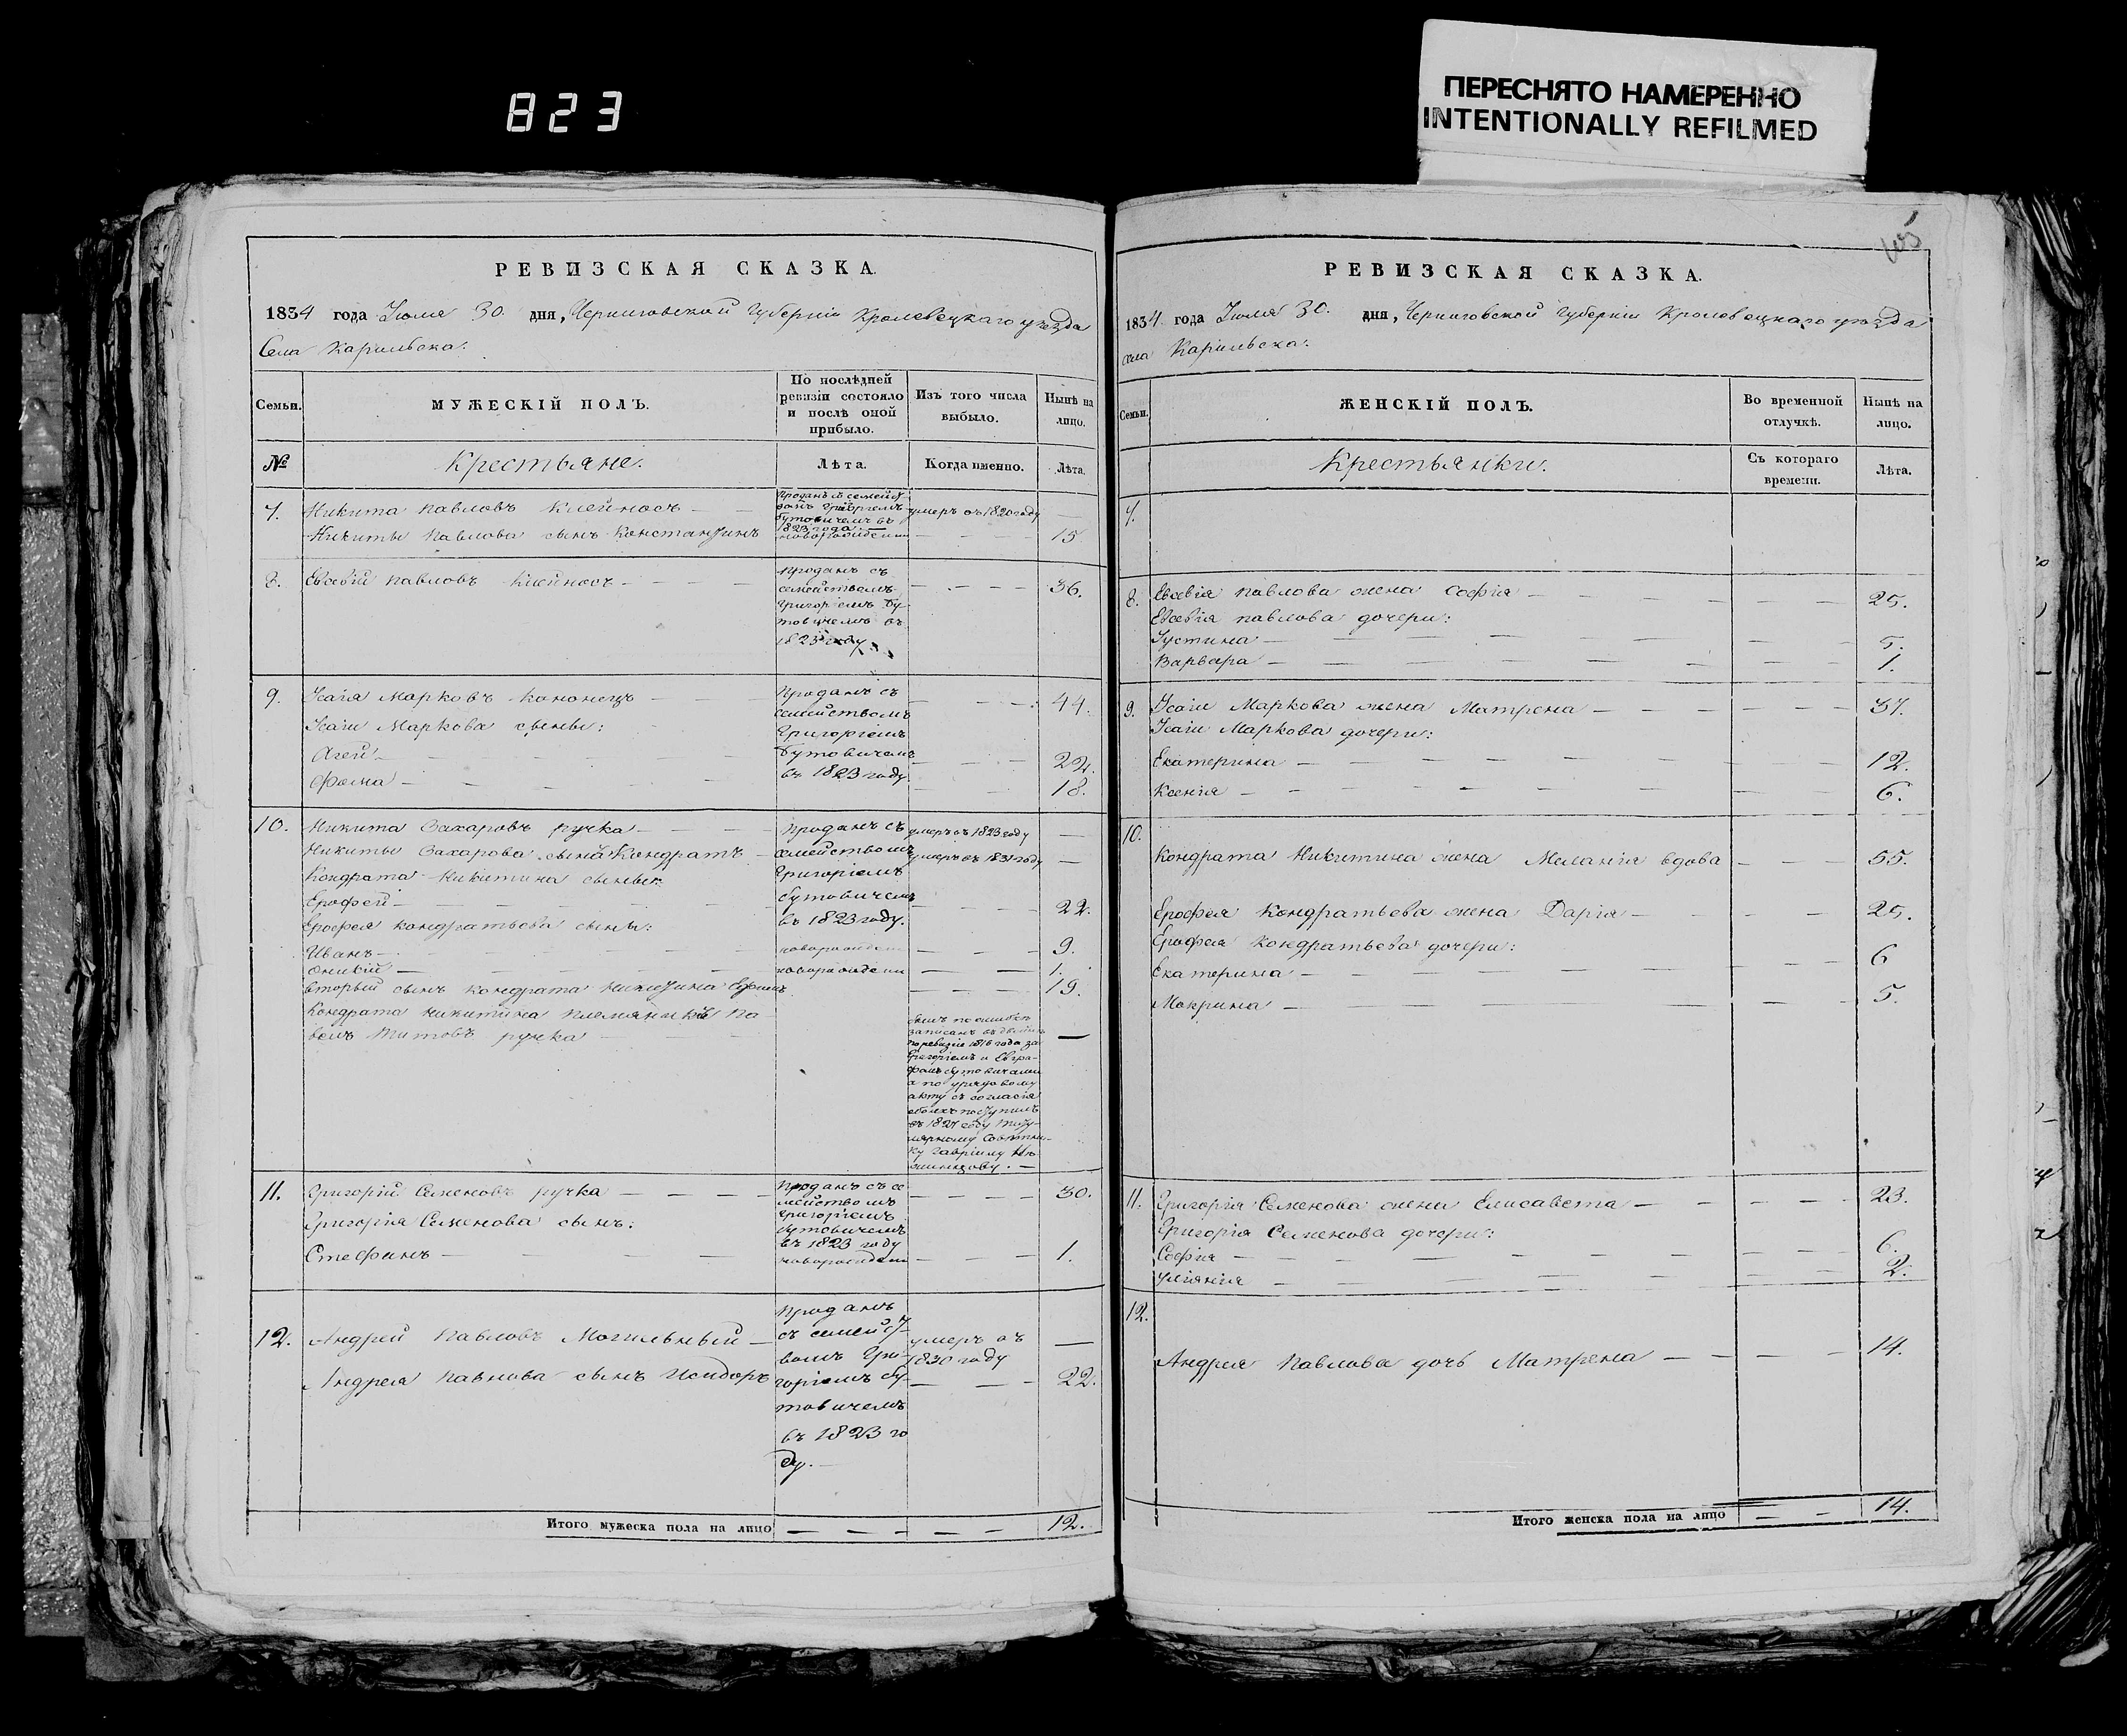 823
ПЕРЕСНЯТО НАМЕРЕННО
INTENTIONALLY REFILMED
РЕВИЗСКАЯ СКАЗКА.
1834 года Іюля 30. дня, Черниговской Губерніи Кролевецкаго уѣзда
Села Карильска:
Семьи.
МУЖЕСКІЙ ПОЛЪ.
По послѣдней
ревизіи состояло
и послѣ оной
прибыло.
Изъ того числа
выбыло.
Нынѣ на
лицо.
№
Крестьяне.
Лѣта.
Когда именно.
Лѣта.
7.
Никита Павловъ Клейносъ
Проданъ съ семейст
вомъ Григоріемъ
Бутовичемъ въ
1823 года
умеръ въ 1820 году
Никиты Павлова сынъ Константинъ
новорожденъ
15
8.
Евсевій Павловъ Клейносъ
Проданъ съ
семействомъ
Григоріемъ Бу-
товичемъ въ
1823 году
36.
9.
Исаія Марковъ Кононецъ
Исаіи Маркова сыны:
Агей
Фома
Проданъ съ
семействомъ
Григоріемъ
Бутовичемъ
въ 1823 году
44.
22.
18.
10.
Никита Захаровъ ручка
Никиты Захарова сынъ Кондратъ
Кондрата Никитина сыны
Ерофей
Ерофея Кондратьева сыны:
Иванъ
Оникій
вторый сынъ Кондрата Никитина
Кондрата Никитина племянникъ Па
велъ Титовъ ручка
Проданъ съ
семействомъ
Григоріемъ
Бутовичемъ
въ 1823 году.
новорожденъ
новорожденъ
умеръ въ 1823 году
умеръ въ 1831 году
22.
9.
1.
19.
по ошибкѣ
записанъ
по ревизіи 1816 года за
Григоріемъ и Евгра-
фомъ Бутовичами
а по урядовому
акту съ согласія
обоихъ поступилъ
въ 1827 году Титу-
лярному Совѣтни-
ку Гавріилу
11.
Григорій Семеновъ ручка
Григорія Семенова сынъ:
Стефанъ
Проданъ съ се
мействомъ
Григоріемъ
Бутовичемъ
въ 1823 году
новорожденъ
30.
1.
12.
Андрей Павловъ Могильный
Андрея Павлова сынъ Исидоръ
Проданъ
съ семейст-
вомъ Гри-
горіемъ Бу-
товичемъ
въ 1823 го
ду.
умеръ въ
1830 году
22.
Итого мужеска пола на лицо
12.
РЕВИЗСКАЯ СКАЗКА.
1834 года Іюля 30. дня, Черниговской Губерніи Кролевецкаго уѣзда
села Карильска:
Семьи.
ЖЕНСКІЙ ПОЛЪ.
Во временной
отлучкѣ.
Нынѣ на
лицо.
Крестьянки.
Съ котораго
времени.
Лѣта.
7.
8.
Евсевія Павлова жена Софія
25.
Евсевія Павлова дочери:
Іустина
5.
Варвара
1.
9.
Исаіи Маркова жена Матрена
37.
Исаіи Маркова дочери:
Екатерина
12.
Ксенія
6.
10.
Кондрата Никитина жена Меланія вдова
55.
Ерофея Кондратьева жена Дарія
25.
Ерофея Кондратьева дочери:
Екатерина
6
Мокрина
5.
11.
Григорія Семенова жена Елисавета
23.
Григорія Семенова дочери:
Софія
6.
Уліянія
2.
12.
Андрея Павлова дочь Матрена
14.
Итого женска пола на лицо
14.